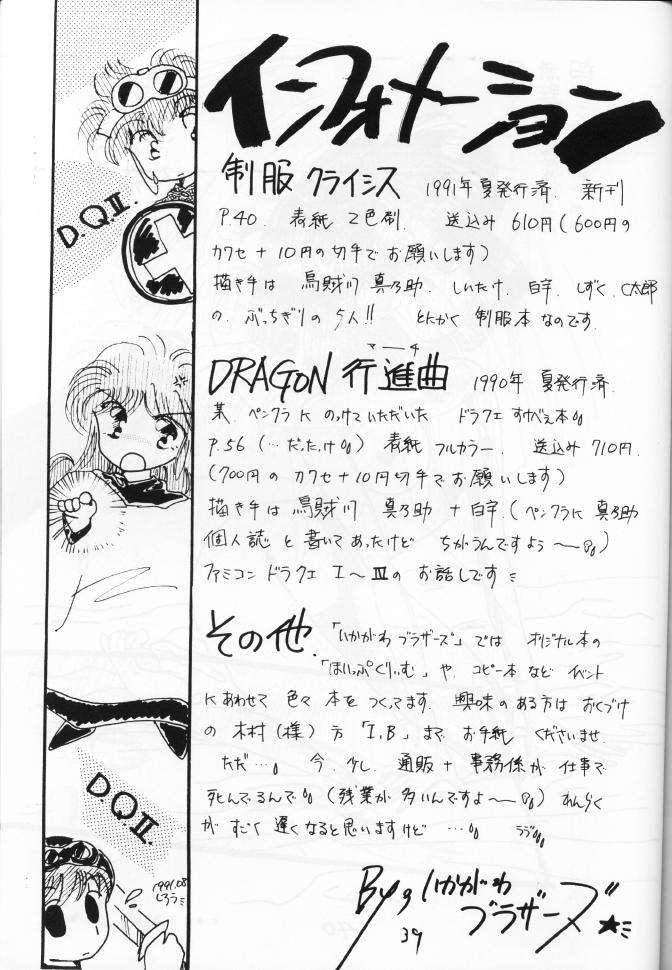 インフォメーション
制服クライシス 1991年夏発行済. 新刊
P.40. 表紙 2色刷. 送込み 610円(600円の
カワセ + 10円の切手で お願いします)
描き手は 烏賊川 真乃助. しいたけ. 白宇. しずく. C太郎
の. ぶっちぎりの 5人!! とにかく 制服本 なのです.
マーチ
DRAGON 行進曲 1990年 夏発行済.
某. ペンクラに のっけていただいた ドラクエ すけべえ本。
P.56 (…だったっけ) 表紙 フルカラー. 送込み 710円.
(700円の カワセ+10円切手で お願いします)
描き手は 烏賊川 真乃助 + 白宇. (ペンクラに 真乃助
個人誌 と 書いて あったけど ちがうんですよう〜)
ファミコン ドラクエ I〜IVの お話しです
その他. 「いかがわ ブラザーズ」では オリジナル本の
「ほいっぷくりぃむ」や. コピー本 など イベント
にあわせて 色々 本を つくってます. 興味の ある方は おくづけ
の 木村(様)方「I.B」まで お手紙 くださいませ.
ただ…。 今. 少し. 通販+事務係が 仕事で
死んでるんで (残業が 多いんですよ〜) れんらく
が すごく 遅くなると思いますけど …
By いかがわ
ブラザーズ ★
39
D.Q.II.
D.Q.II.
1991.08
しろう